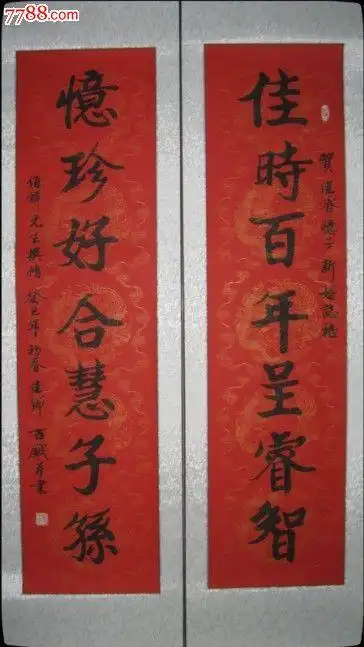 7788.com
賀 睿憶 新婚誌禧
佳時百年呈睿智
憶珍好合慧子孫
先生撰聯 癸巳年初春佳節 百 并書